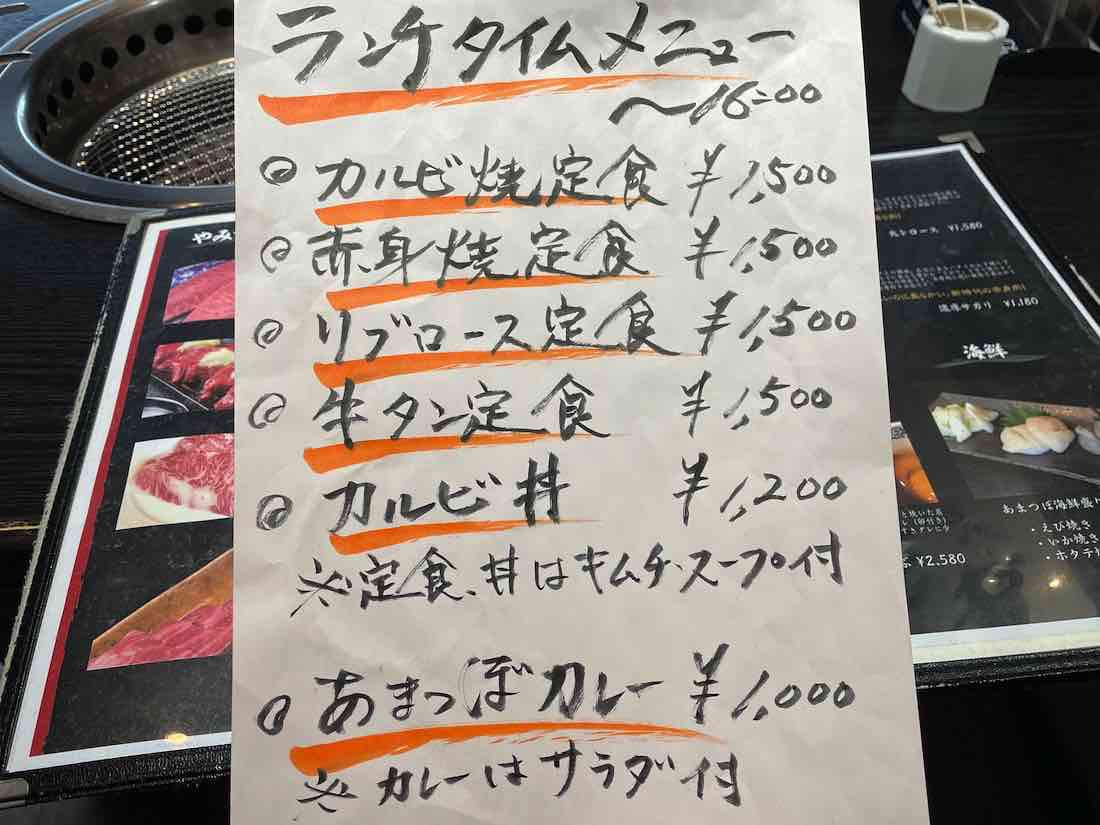 ランチタイムメニュー
〜16:00
◎ カルビ焼定食 ¥1,500
◎ 赤身焼定食 ¥1,500
◎ リブロース定食 ¥1,500
◎ 牛タン定食 ¥1,500
◎ カルビ丼 ¥1,200
※定食、丼はキムチ・スープ付
◎ あまつぼカレー ¥1,000
※カレーはサラダ付
やみ
¥1,580
¥1,180
海鮮
あまつぼ海鮮盛
・えび焼き
・いか焼き
・ホタテ
¥2,580